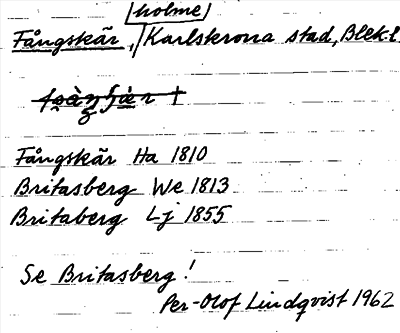 /holme/
Fångskär, Karlskrona stad, Blek.l.
Fångskär Ha 1810
Britasberg We 1813
Britaberg Lj 1855
Se Britasberg!
Per-Olof Lindqvist 1962